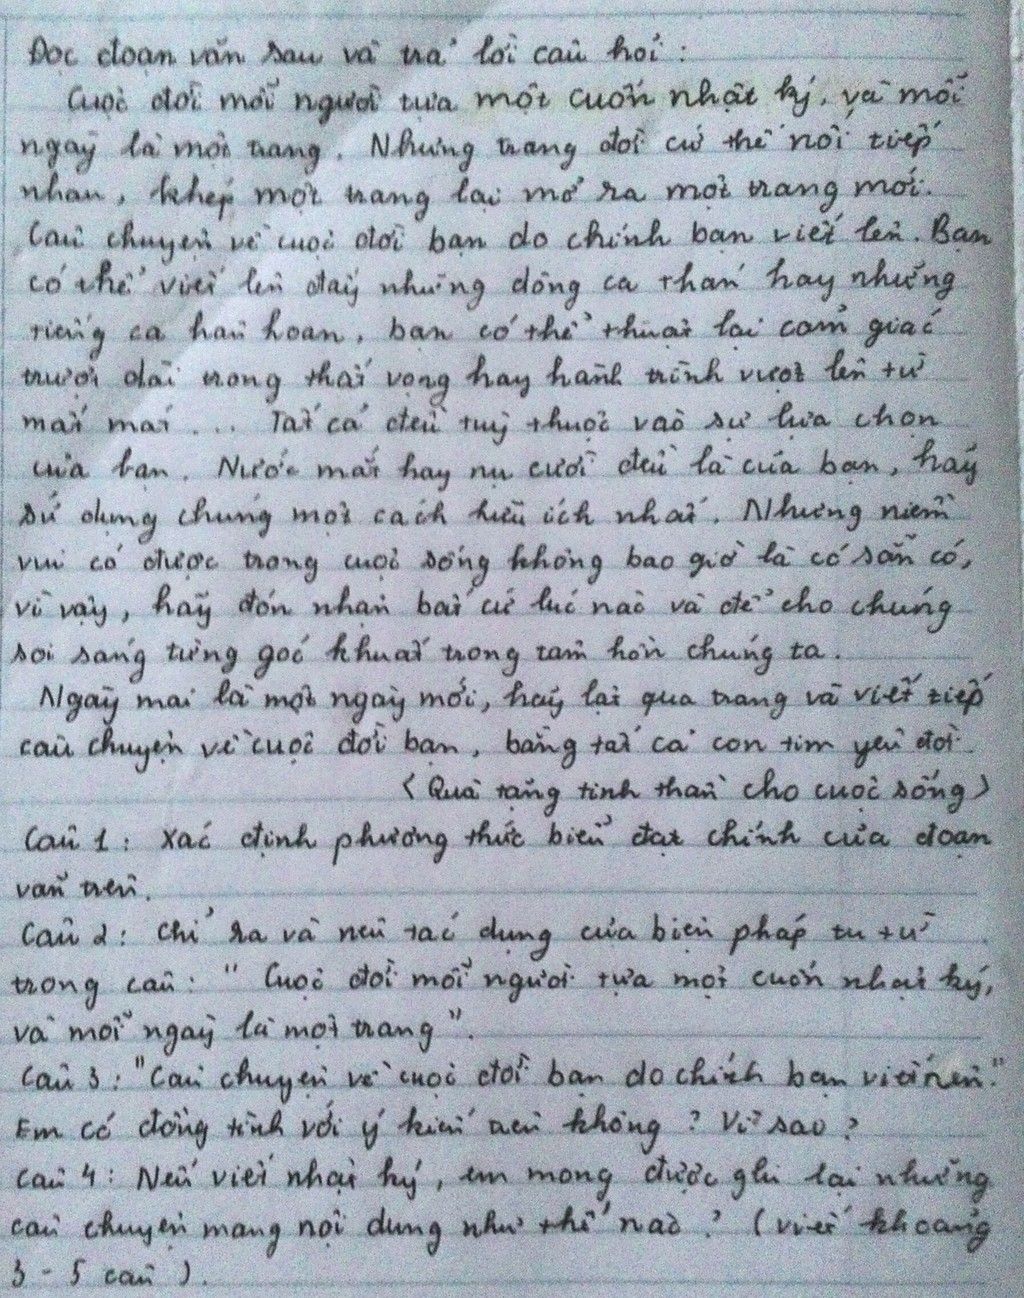 Đọc đoạn văn sau và trả lời câu hỏi :
Cuộc đời mỗi người tựa một cuốn nhật ký, và mỗi
ngày là một trang. Những trang đời cứ thế nối tiếp
nhau, khép một trang lại mở ra một trang mới.
Câu chuyện về cuộc đời bạn do chính bạn viết lên. Bạn
có thể viết lên đấy những dòng ca thán hay những
tiếng ca hân hoan, bạn có thể thuật lại cảm giác
trượt dài trong thất vọng hay hành trình vượt lên từ
mất mát ... Tất cả đều tuỳ thuộc vào sự lựa chọn
của bạn. Nước mắt hay nụ cười đều là của bạn, hãy
sử dụng chúng một cách hữu ích nhất. Nhưng niềm
vui có được trong cuộc sống không bao giờ là có sẵn có,
vì vậy, hãy đón nhận bất cứ lúc nào và để cho chúng
soi sáng từng góc khuất trong tâm hồn chúng ta.
Ngày mai là một ngày mới, hãy lật qua trang và viết tiếp
câu chuyện về cuộc đời bạn, bằng tất cả con tim yêu đời.
< Quà tặng tinh thần cho cuộc sống >
Câu 1 : Xác định phương thức biểu đạt chính của đoạn
văn trên.
Câu 2 : Chỉ ra và nêu tác dụng của biện pháp tu từ
trong câu : " Cuộc đời mỗi người tựa một cuốn nhật ký,
và mỗi ngày là một trang ".
Câu 3 : "Câu chuyện về cuộc đời bạn do chính bạn viết nên."
Em có đồng tình với ý kiến trên không ? Vì sao ?
Câu 4 : Nếu viết nhật ký, em mong được ghi lại những
câu chuyện mang nội dung như thế nào ? (viết khoảng
3 - 5 câu ).